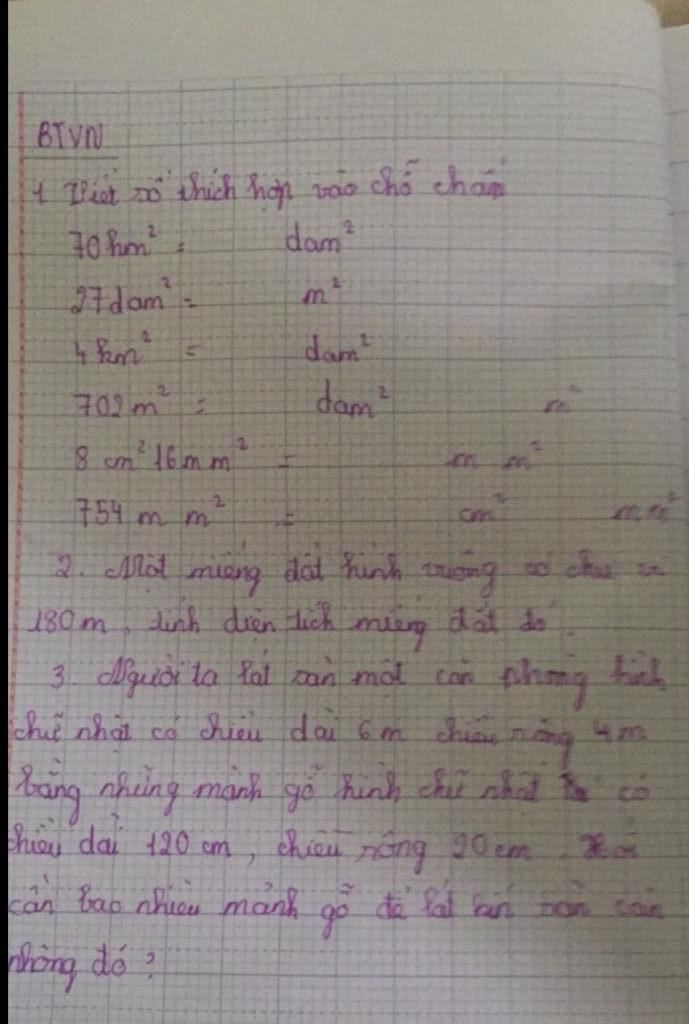 BTVN
1 Viết số thích hợp vào chỗ chấm
70 hm² = dam²
27 dam² = m²
4 km² = dam²
702 m² = dam² m²
8 cm² 16 mm² = mm²
754 mm² = cm² mm²
2. Một miếng đất hình vuông có chu vi
180 m, tính diện tích miếng đất đó
3. Người ta lát sàn một căn phòng hình
chữ nhật có chiều dài 6 m chiều rộng 4 m
bằng những mảnh gỗ hình chữ nhật có
chiều dài 120 cm, chiều rộng 20 cm.
cần bao nhiêu mảnh gỗ để lát kín sàn căn
phòng đó?